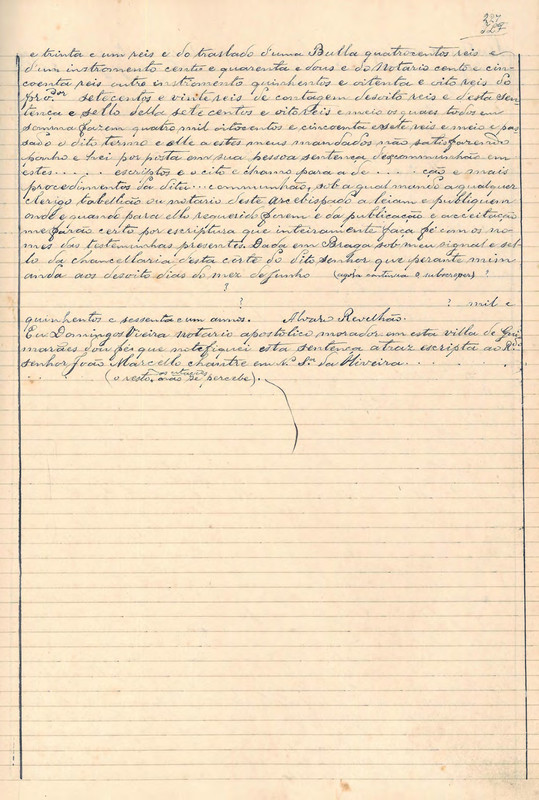 227
e trinta e um reis e do traslado d'uma Bulla quatrocentos reis e
d'um instromento cento e quarenta e dous e do Notario cento e cin-
coenta reis outro instromento quinhentos e oitenta e oito reis do
setecentos e vinte reis de contagem desoito reis e desta sen-
tença e sello della sete centos e oito reis e meio os quaes todos em
somma fazem quatro mil oitocentos e cincoenta e sete reis e meio e pas-
sado o dito termo e elle a estes meus mandados não satisfazendo
ponho e hei por posta em sua pessoa sentença descommunhão em
estes ..... escriptos e o cito e chamo para a de ..... ção e mais
procedimentos da dita .. communhão, sob a qual mando a qualquer
clerigo tabellião ou notario deste arcebispado a leiam e publiquem
onde e quando para ello requerido forem e da publicação e acceitação
me farão certo por escriptura que inteiramente faça fé com os no-
mes das testeminhas presentes. Dada em Braga sob meu signal e sel-
lo da chancellaria desta côrte do dito senhor que perante mim
anda aos desoito dias do mez de Junho (agora continua o subscrever) ?
?
? mil e
quinhentos e sessenta e um annos. Alvaro Revelhão.
Eu Domingos Vieira notario apostolico morador em esta villa de Gui-
marães dou fé que notefiquei esta sentença atraz escripta ao R.do
senhor João Marcello chantre em N. Sr.a da Oliveira .....
(o resto, não se percebe).